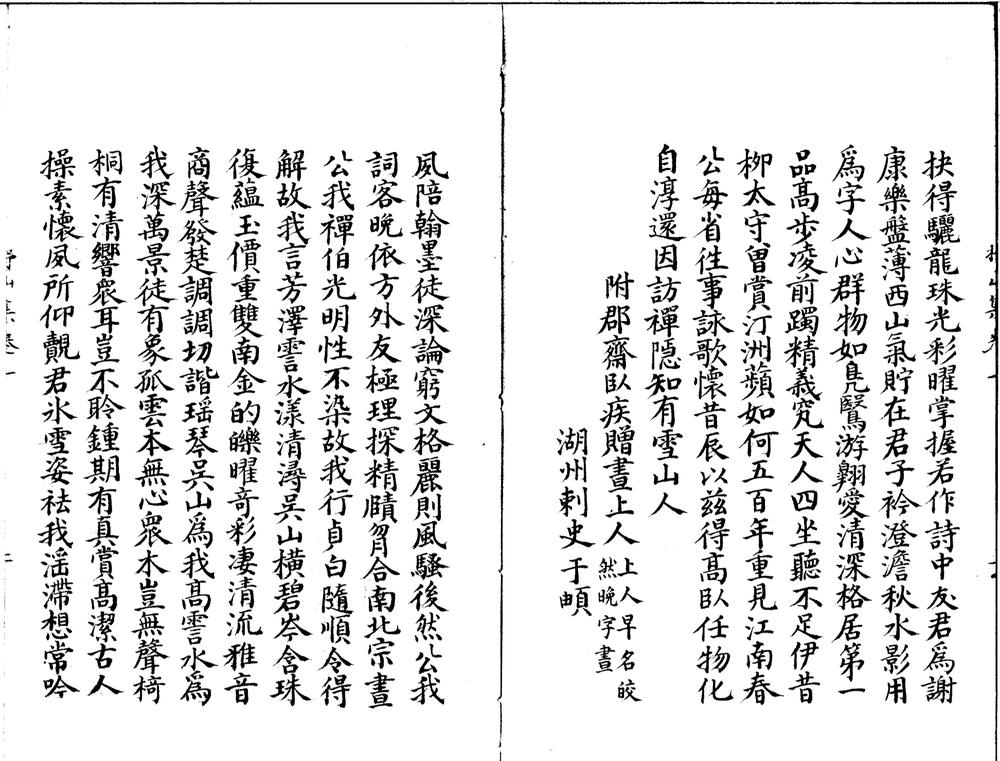 抉得驪龍珠光彩曜掌握若作詩中友君為謝
康樂盤薄西山氣貯在君子衿澄澹秋水影用
為字人心群物如鳧鷖游翺愛清深格居第一
品高步凌前躅精義究天人四坐聽不足伊昔
栁太守曽賞汀洲蘋如何五百年重見江南春
公每省徃事詠歌懷昔辰以兹得高臥任物化
自淳還因訪禪隠知有雪山人
附郡齋臥疾贈晝上人
上人早名皎
然晩字晝
湖州刺史于頔
夙陪翰墨徒深論窮文格麗則風騷後然公我
詞客晩依方外友極理探精賾脗合南北宗晝
公我禪伯光明性不染故我行貞白隨順令得
解故我言芳澤霅水漾清潯吳山橫碧岑含珠
復藴玉價重雙南金的皪曜奇彩凄清流雅音
商聲發楚調調切諧瑶琴吳山為我高霅水為
我深萬景徒有象孤雲本無心衆木豈無聲椅
桐有清響衆耳豈不聆鍾期有真賞高潔古人
操素懷夙所仰覿君氷雪姿袪我滛滯想常吟